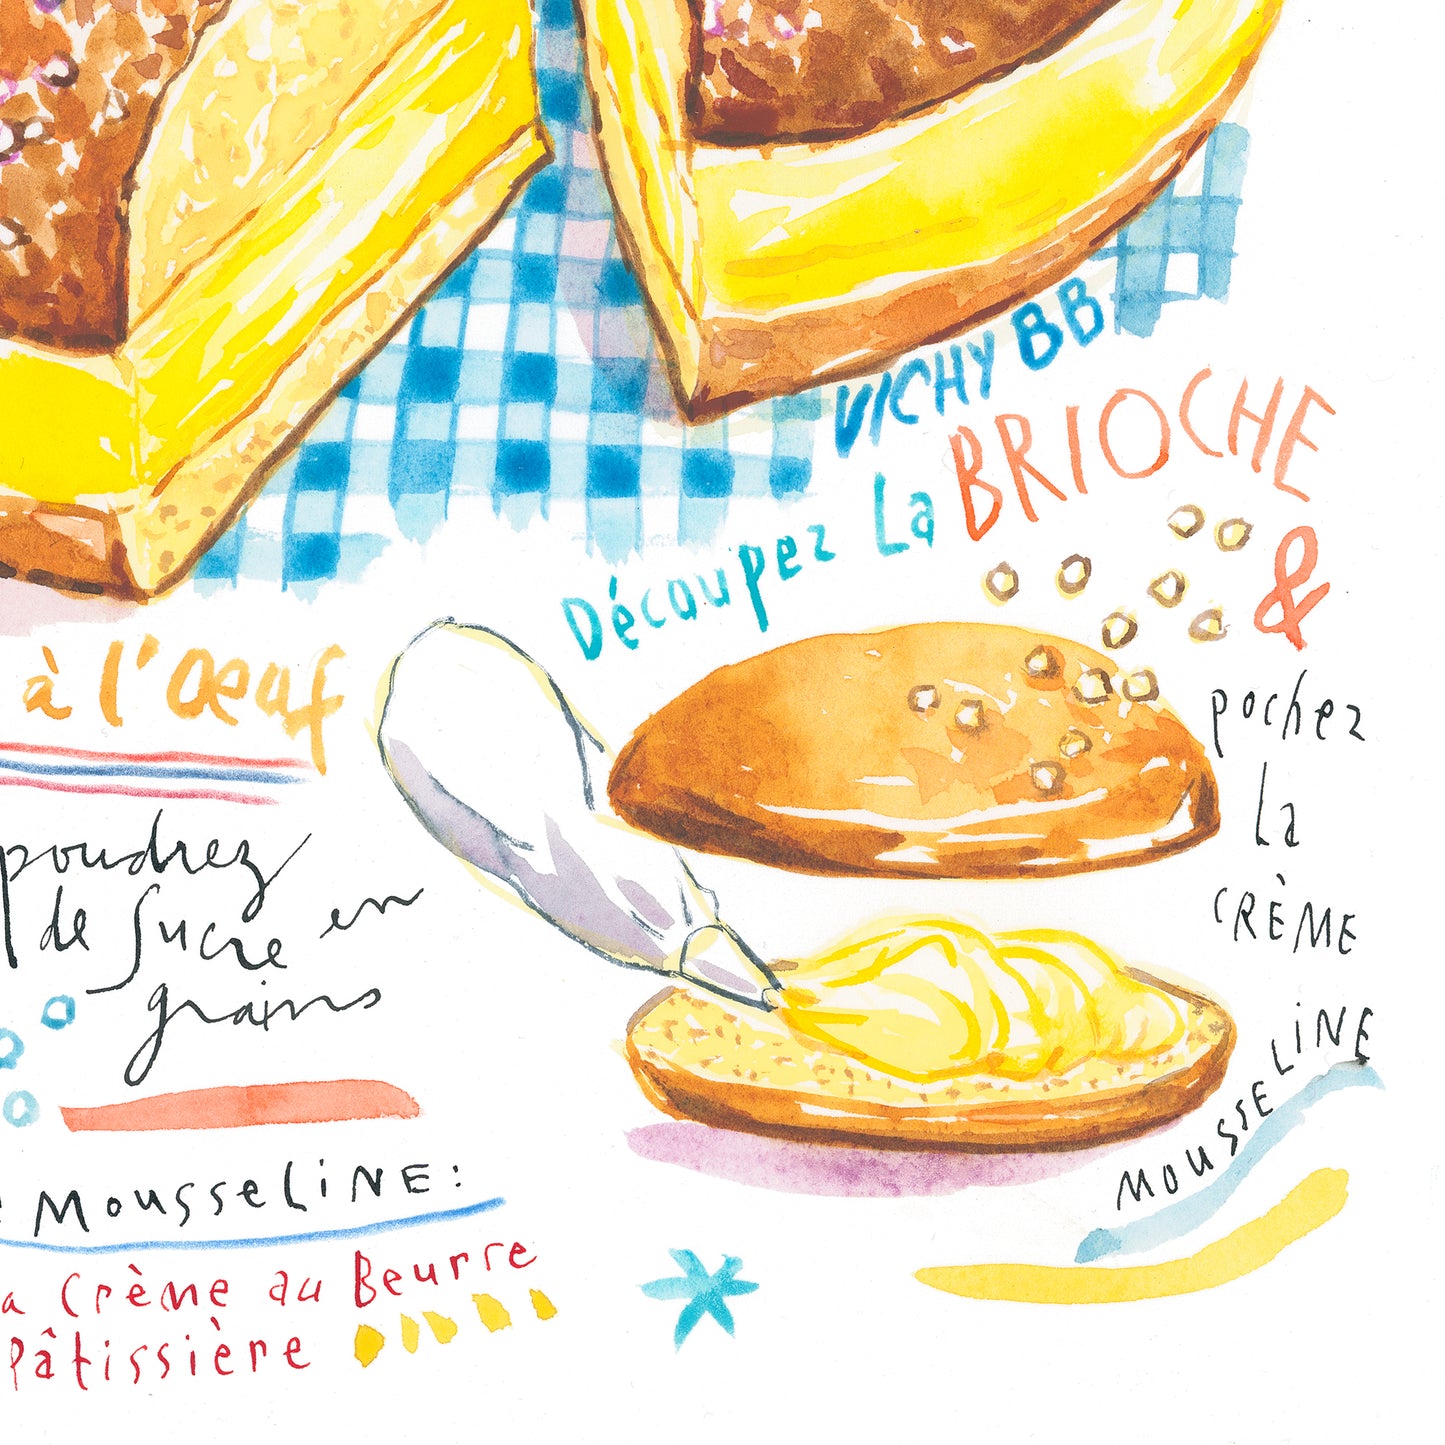 VICHY BB
Découpez La BRIOCHE
&
pochez
La
CRÈME
MOUSSELINE
à l'œuf
poudrez
de sucre en
grains
MousseLiNE:
a Crème au Beurre
Pâtissière